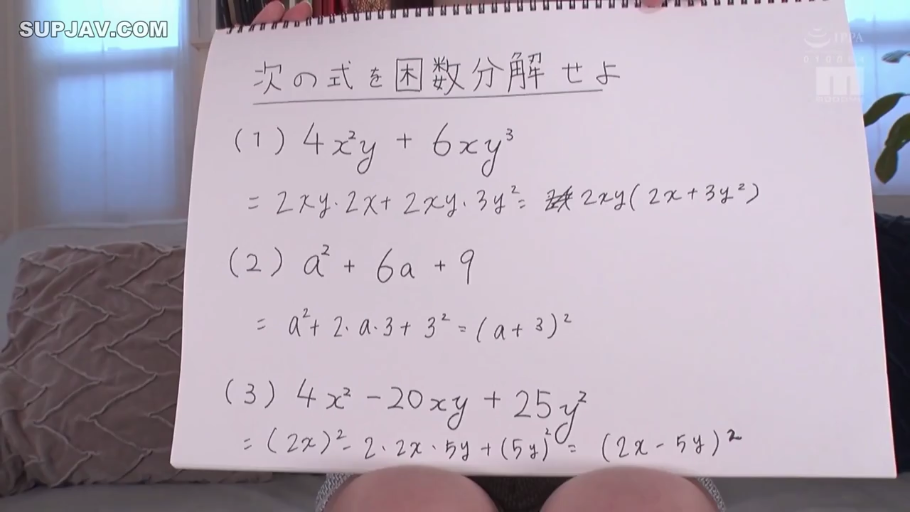 SUPJAV.COM
次の式を因数分解せよ
(1) 4x²y + 6xy³
= 2xy·2x + 2xy·3y² = 2xy(2x+3y²)
(2) a² + 6a + 9
= a² + 2·a·3 + 3² = (a+3)²
(3) 4x² - 20xy + 25y²
= (2x)² - 2·2x·5y + (5y)² = (2x-5y)²